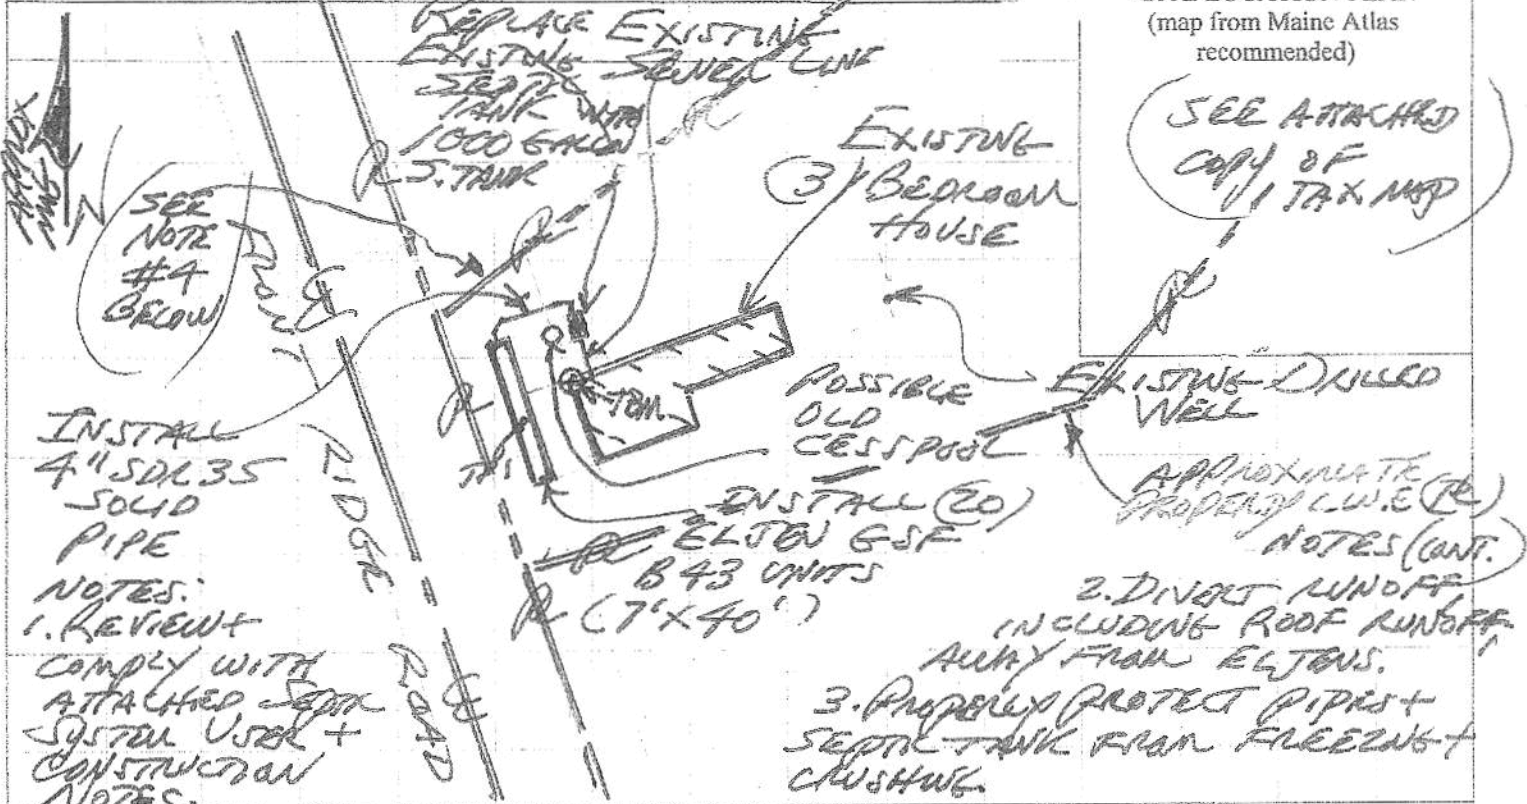 (map from Maine Atlas
recommended)
SEE ATTACHED
COPY OF
TAX MAP
REPLACE EXISTING
EXISTING SEWER LINE
SEPTIC
TANK WITH
1000 GALLON
S. TANK
EXISTING
(3) BEDROOM
HOUSE
SEE
NOTE
#4
BELOW
TBM
INSTALL
4" SDR 35
SOLID
PIPE
POSSIBLE
OLD
CESSPOOL
EXISTING DRILLED
WELL
APPROXIMATE
PROPERTY LINE (PL)
INSTALL (20)
ELJEN GSF
B43 UNITS
(7'X40')
RIDGE
ROAD
NOTES:
1. REVIEW +
COMPLY WITH
ATTACHED SEPTIC
SYSTEM USER +
CONSTRUCTION
NOTES.
NOTES (CONT.)
2. DIVERT RUNOFF,
INCLUDING ROOF RUNOFF,
AWAY FROM ELJENS.
3. PROPERLY PROTECT PIPES +
SEPTIC TANK FROM FREEZING +
CRUSHING.